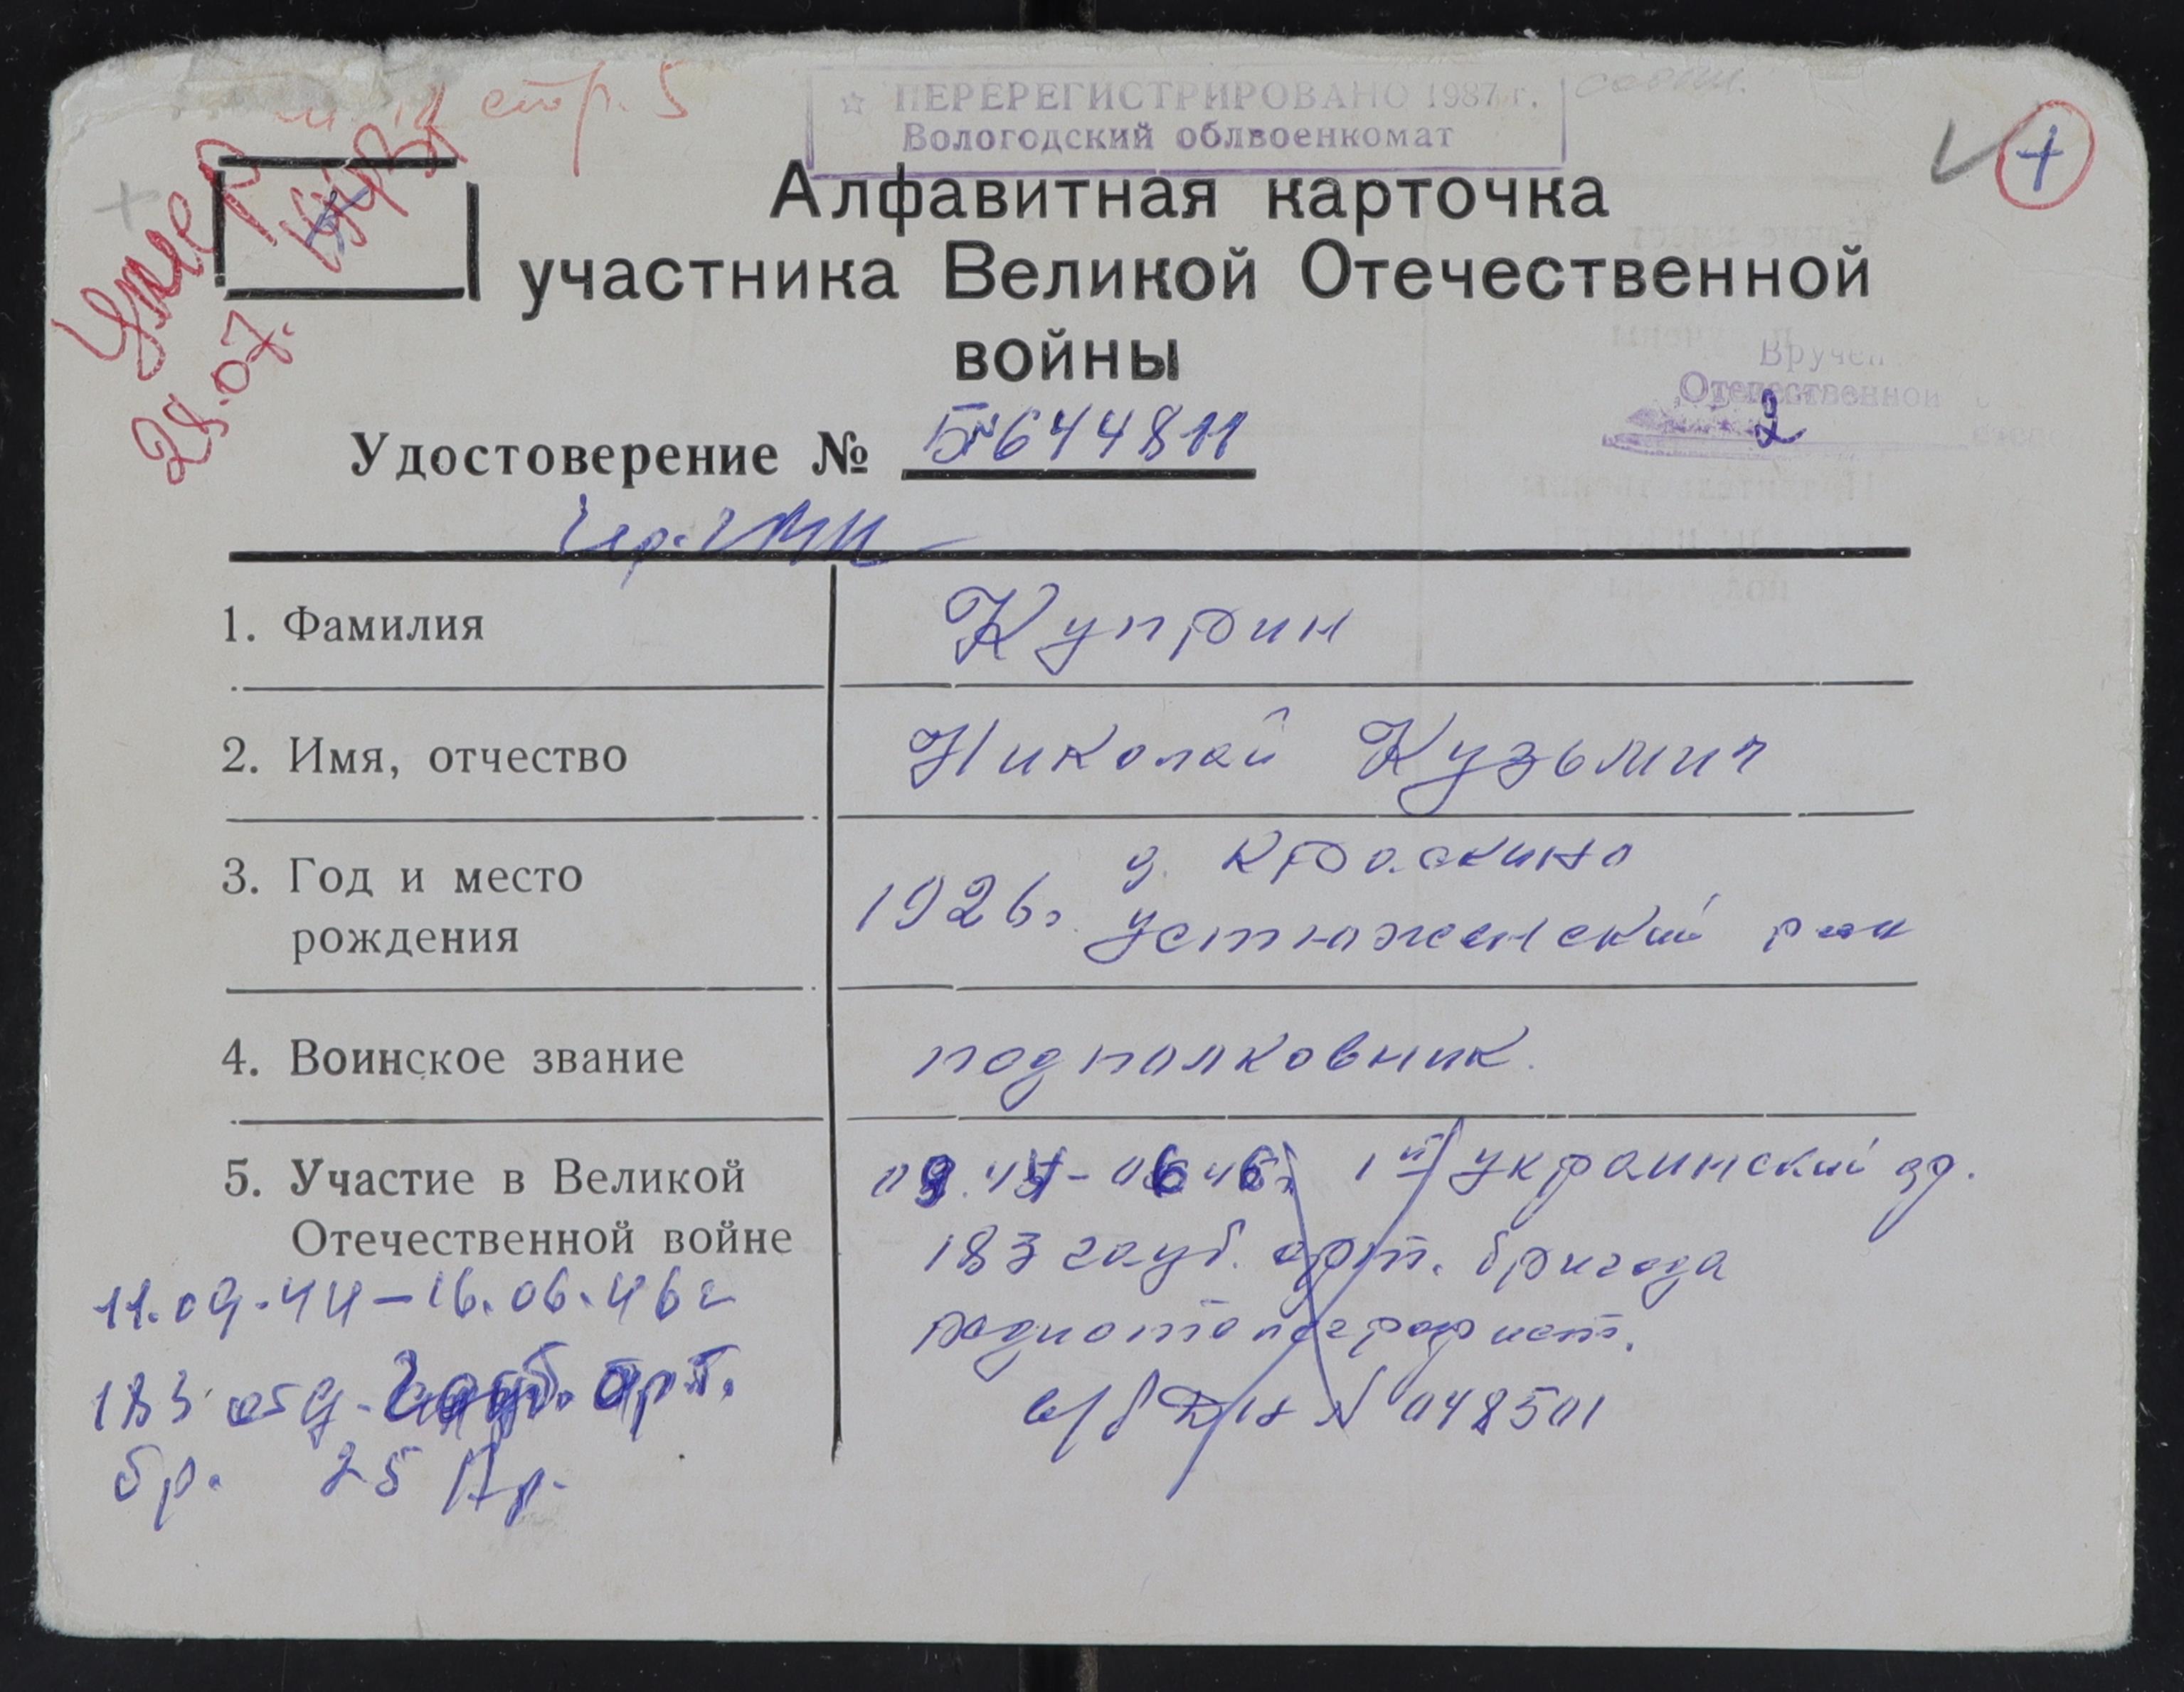 стр. 5
☆ ПЕРЕРЕГИСТРИРОВАНО 1987 г.
Вологодский облвоенкомат
+
Умер
28.07.
Алфавитная карточка
участника Великой Отечественной
войны
Вручен
Отечественной
2
Удостоверение № Б№644811
1. Фамилия Куприн
2. Имя, отчество Николай Кузьмич
3. Год и место рождения 1926г. д. Краскино
Устюженский р-н
4. Воинское звание подполковник.
5. Участие в Великой Отечественной войне
09.44-06.46г. 1й украинский фр.
183 гауб. арт. бригада
радиотелеграфист.
в/б № 048501
11.09.44-16.06.46г
183 отд. гауб. арт.
бр. 25